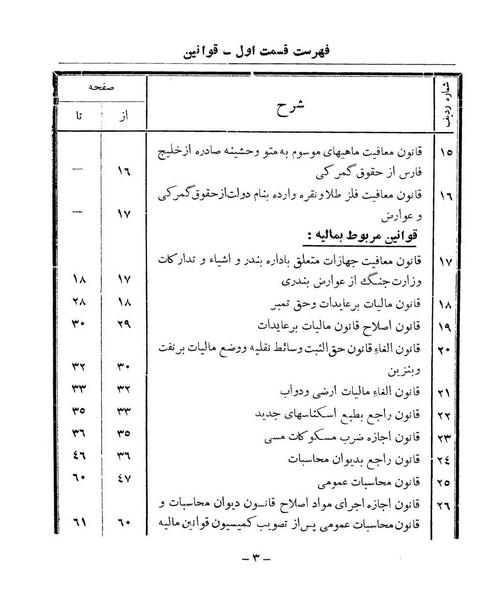 فهرست قسمت اول – قوانین
شماره ردیف
شرح
صفحه
از
تا
۱۵ قانون معافیت ماهیهای موسوم به متو وحشینه صادره از خلیج
فارس از حقوق گمرکی ۱۶ —
۱۶ قانون معافیت فلز طلا و نقره وارده بنام دولت از حقوق گمرکی
و عوارض ۱۷ —
قوانین مربوط بمالیه :
۱۷ قانون معافیت جهازات متعلق باداره بندر و اشیاء و تدارکات
وزارت جنگ از عوارض بندری ۱۷ ۱۸
۱۸ قانون مالیات برعایدات وحق تمبر ۱۸ ۲۸
۱۹ قانون اصلاح قانون مالیات برعایدات ۲۹ ۳۰
۲۰ قانون الغاء قانون حق الثبت وسائط نقلیه ووضع مالیات برنفت
وبنزین ۳۰ ۳۲
۲۱ قانون الغاء مالیات ارضی ودواب ۳۲ ۳۳
۲۲ قانون راجع بطبع اسکناسهای جدید ۳۳ ۳۵
۲۳ قانون اجازه ضرب مسکوکات مسی ۳۵ ۳۶
۲۴ قانون راجع بدیوان محاسبات ۳۶ ۴۶
۲۵ قانون محاسبات عمومی ۴۷ ۶۰
۲۶ قانون اجازه اجرای مواد اصلاح قانون دیوان محاسبات و
قانون محاسبات عمومی پس از تصویب کمیسیون قوانین مالیه ۶۰ ۶۱
– ۳ –